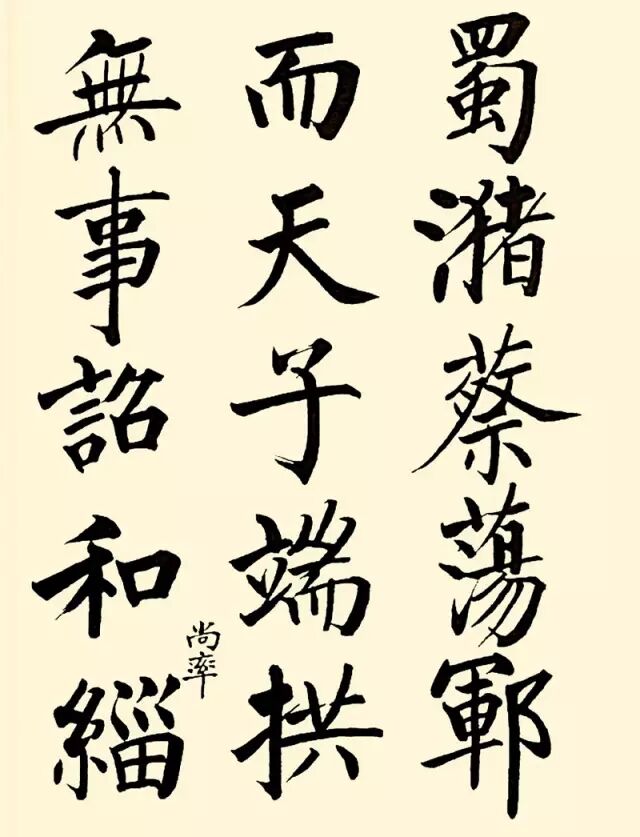 蜀潴蔡蕩鄆
而天子端拱
無事詔和尚率緇